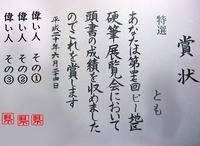 賞状
特選
とも
あなたは第四七回ピー地区
硬筆展覧会において
頭書の成績を収めました
のでこれを賞します
平成二十年六月二十四日
偉い人 その①
偉い人 その②
偉い人 その③